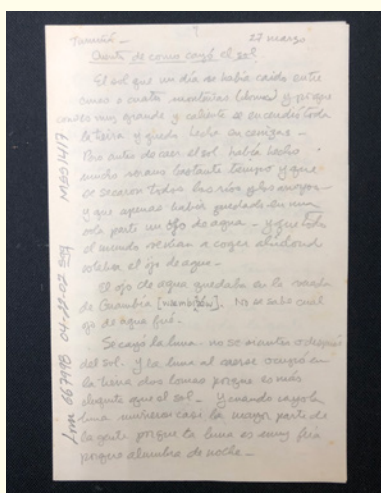 27 marzo
Cuento de como cayó el sol
El sol que un día se había caido entre
cuatro montañas (lomas) y porque
es muy grande y caliente se encendió toda
la tierra y quedó hecha en cenizas -
Pero antes de caer el sol había hecho
mucho verano bastante tiempo y que
se secaron todos los ríos y los arroyos
y que apenas había quedado en una
sola parte un ojo de agua - y que todo
el mundo venían a coger al donde
estaba el ojo de agua -
El ojo de agua quedaba en la
de Guambía No se sabe cual
ojo de agua fué.
Se cayó la luna - no se antes o después
del sol. Y la luna al caerse ocupó en
la tierra dos lomas porque es más
que el sol - Y cuando cayó la
luna murieron casi la mayor parte de
la gente porque la luna es muy fría
porque alumbra de noche -